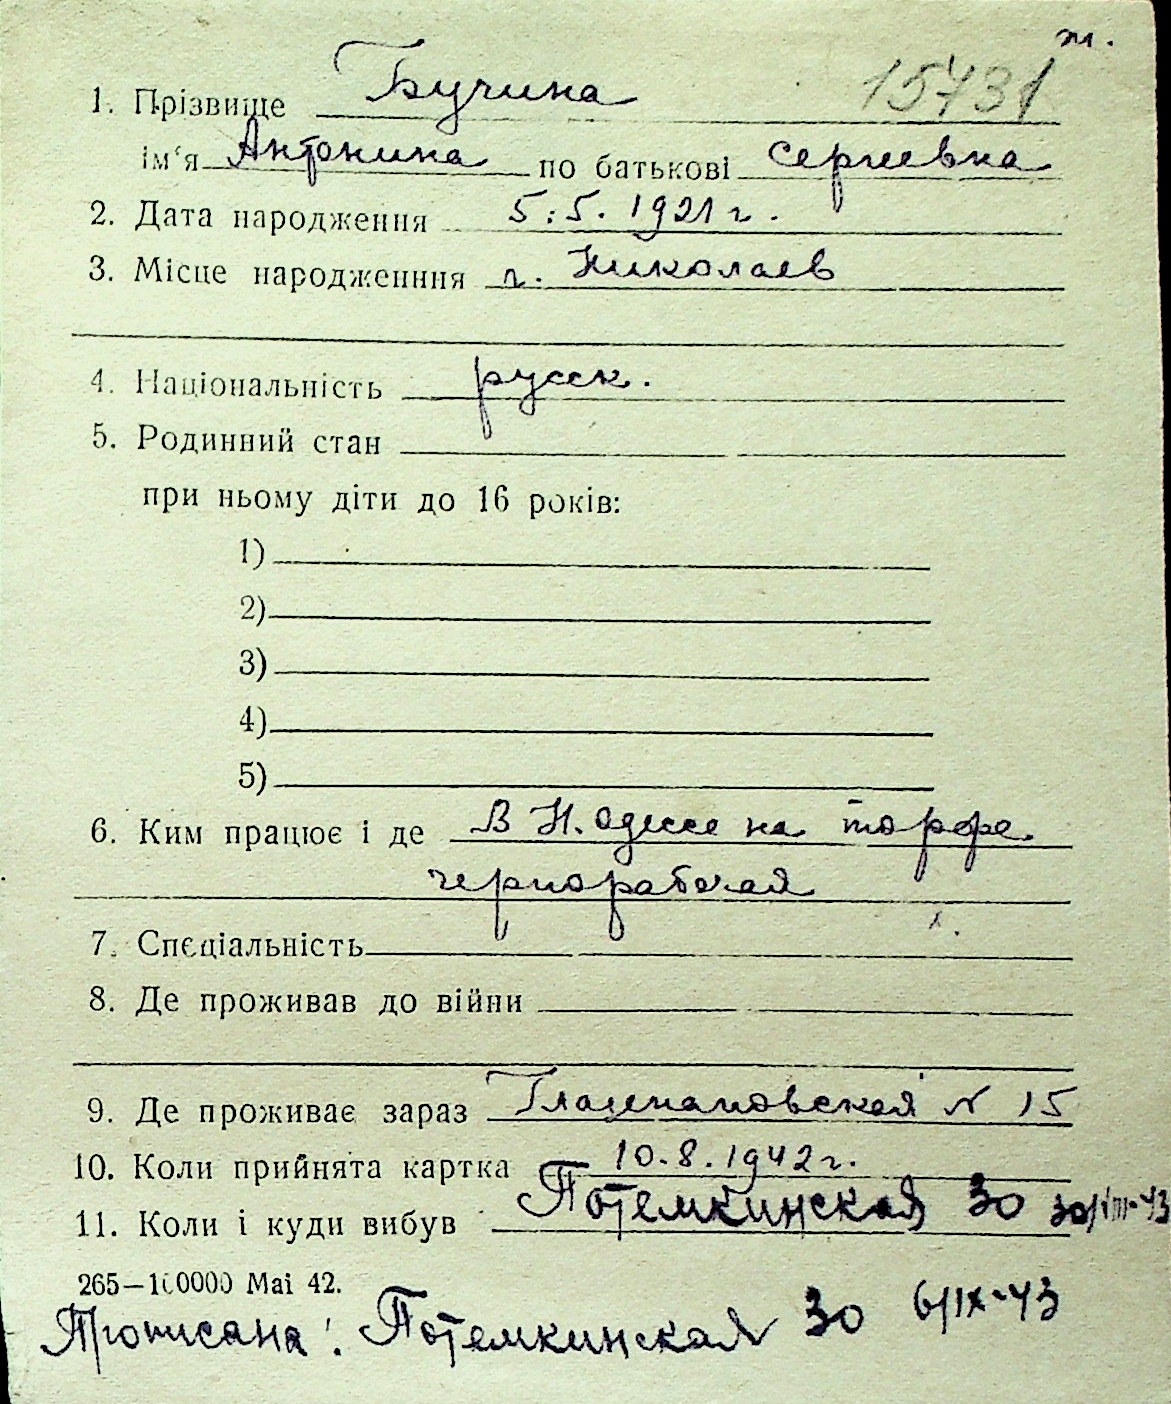 ж.
15731
1. Прізвище Бучина
ім'я Антонина по батькові Сергеевна
2. Дата народження 5.5.1921 г.
3. Місце народженння г. Николаев
4. Національність русск.
5. Родинний стан
при ньому діти до 16 років:
1)
2)
3)
4)
5)
6. Ким працює і де В Н. Одессе на торфе
чернорабочая
7. Спєціальність
8. Де проживав до війни
9. Де проживає зараз № 15
10. Коли прийнята картка 10.8.1942 г.
11. Коли і куди вибув Потемкинская 30 30/VIII-43
265—100000 Mai 42.
Прописана: Потемкинская 30 6/IX-43